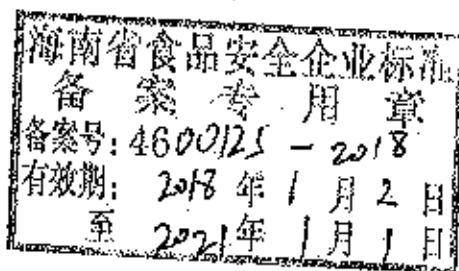 海南省食品安全企业标准
备案专用章
备案号：4600125－2018
有效期：2018年1月2日
至 2021年1月1日